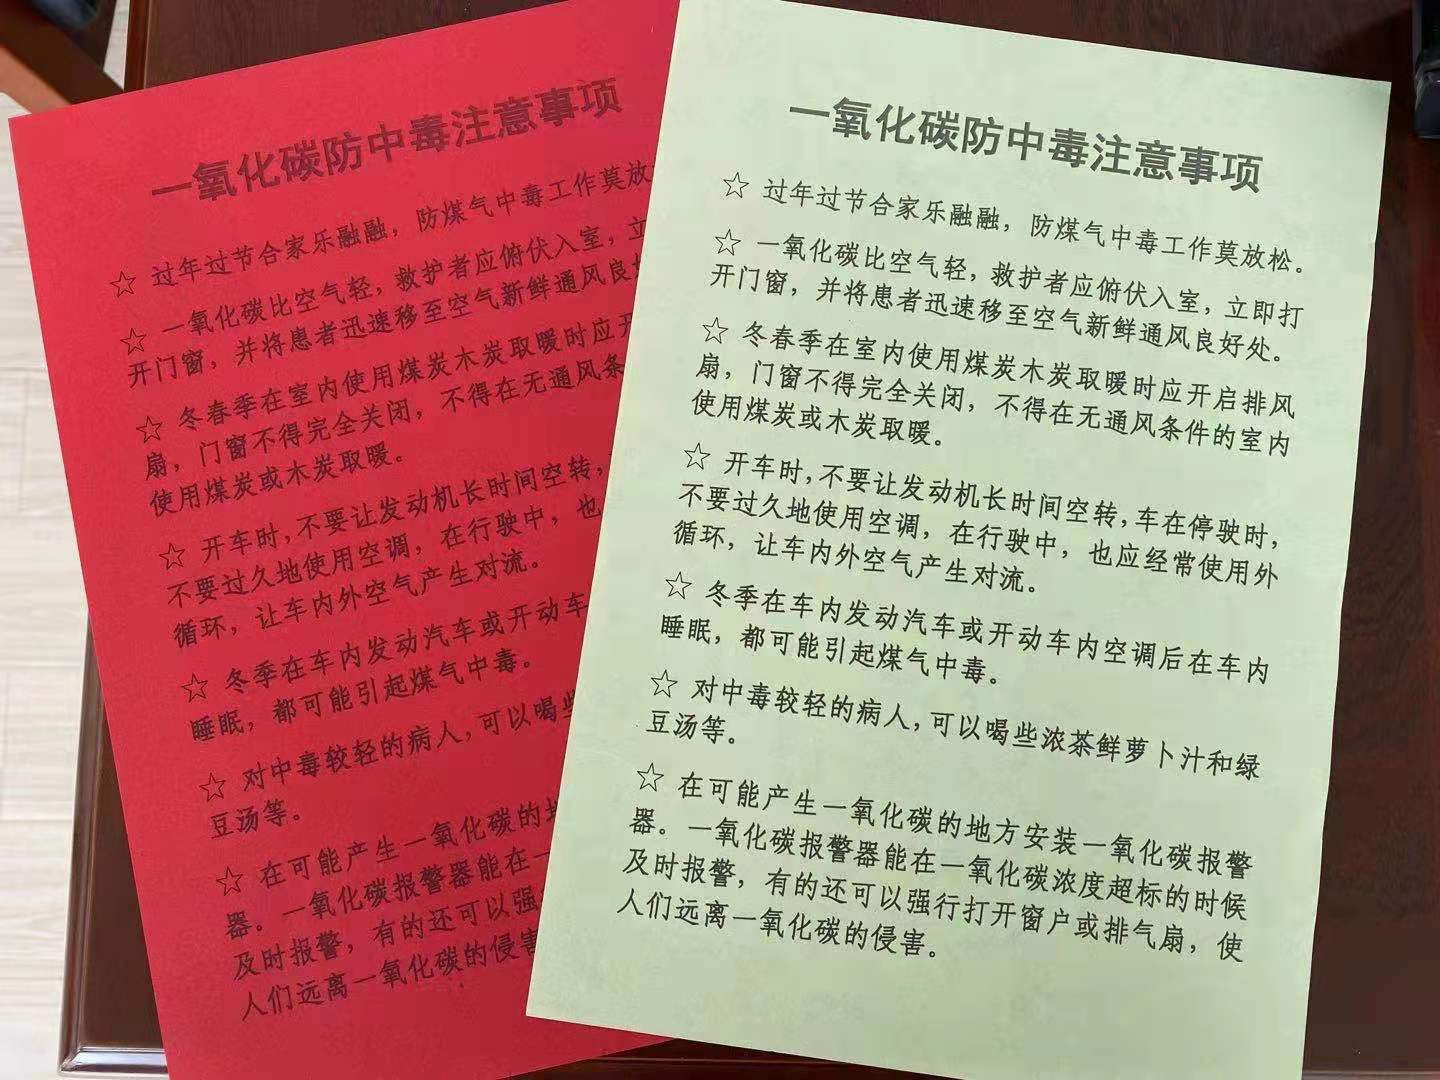 一氧化碳防中毒注意事项
☆ 过年过节合家乐融融，防煤气中毒工作莫放
☆ 一氧化碳比空气轻，救护者应俯伏入室，立
开门窗，并将患者迅速移至空气新鲜通风良
☆ 冬春季在室内使用煤炭木炭取暖时应开
扇，门窗不得完全关闭，不得在无通风条
使用煤炭或木炭取暖。
☆ 开车时,不要让发动机长时间空转,
不要过久地使用空调，在行驶中，也
循环，让车内外空气产生对流。
☆ 冬季在车内发动汽车或开动车
睡眠，都可能引起煤气中毒。
☆ 对中毒较轻的病人,可以喝些
豆汤等。
☆ 在可能产生一氧化碳的地
器。一氧化碳报警器能在一
及时报警，有的还可以强
人们远离一氧化碳的侵害
一氧化碳防中毒注意事项
☆ 过年过节合家乐融融，防煤气中毒工作莫放松。
☆ 一氧化碳比空气轻，救护者应俯伏入室，立即打
开门窗，并将患者迅速移至空气新鲜通风良好处。
☆ 冬春季在室内使用煤炭木炭取暖时应开启排风
扇，门窗不得完全关闭，不得在无通风条件的室内
使用煤炭或木炭取暖。
☆ 开车时,不要让发动机长时间空转,车在停驶时,
不要过久地使用空调，在行驶中，也应经常使用外
循环，让车内外空气产生对流。
☆ 冬季在车内发动汽车或开动车内空调后在车内
睡眠，都可能引起煤气中毒。
☆ 对中毒较轻的病人,可以喝些浓茶鲜萝卜汁和绿
豆汤等。
☆ 在可能产生一氧化碳的地方安装一氧化碳报警
器。一氧化碳报警器能在一氧化碳浓度超标的时候
及时报警，有的还可以强行打开窗户或排气扇，使
人们远离一氧化碳的侵害。